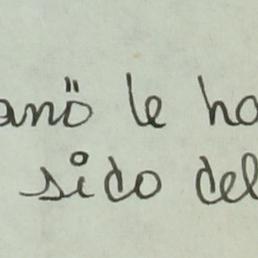 anö le ha
sido del